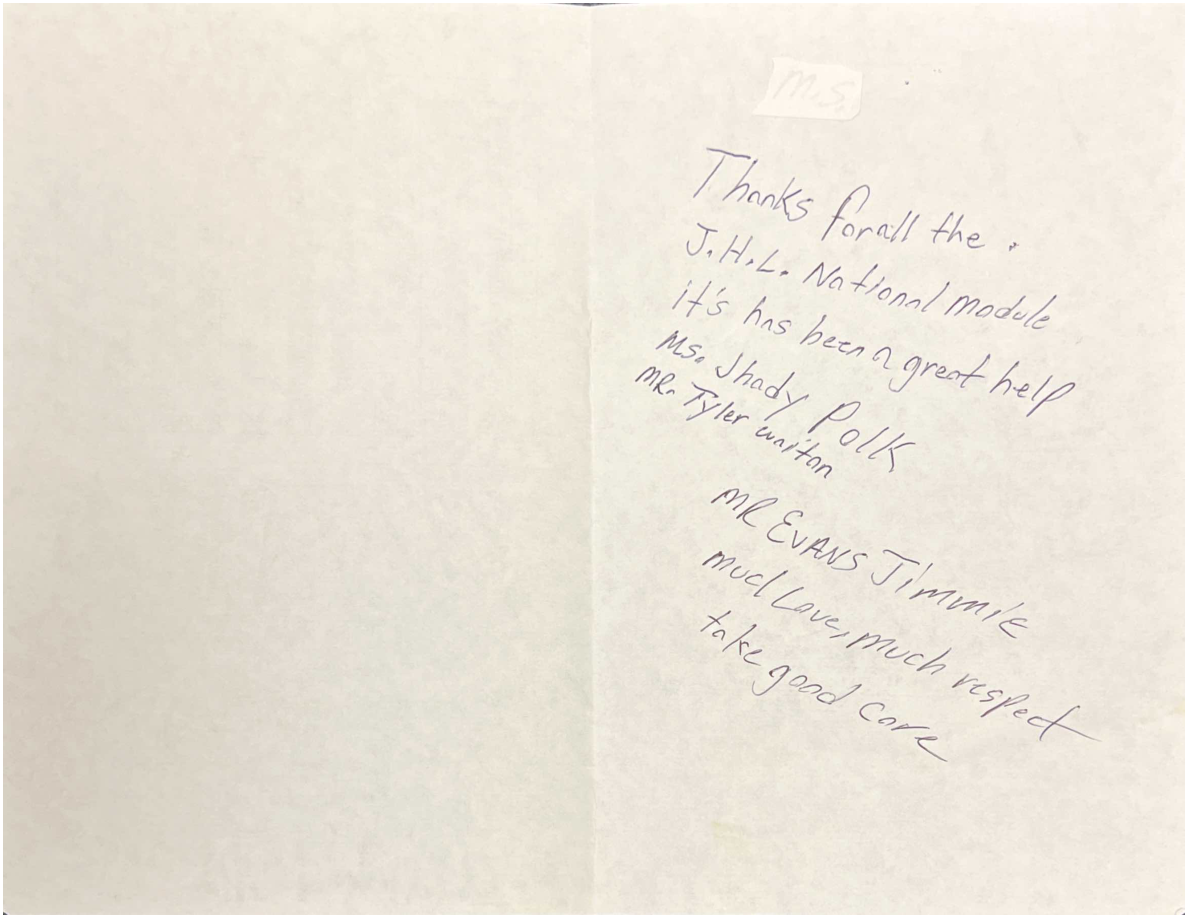 M.S.
Thanks for all the .
J.H.L. National module
it's has been a great help
Ms. Jhady Polk
MR. Tyler
MR EVANS Jimmie
much Love, much respect
take good care